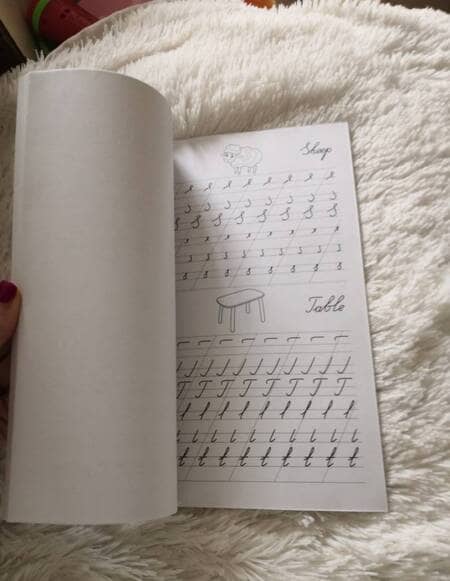 Sheep
S S S S S S S S
s s s s s s s s
Table
T T T T T T T T
t t t t t t t t